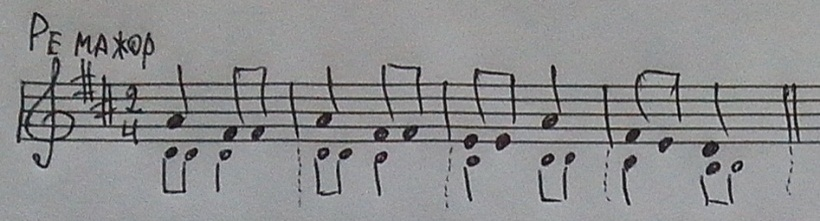 Ре мажор
2
4